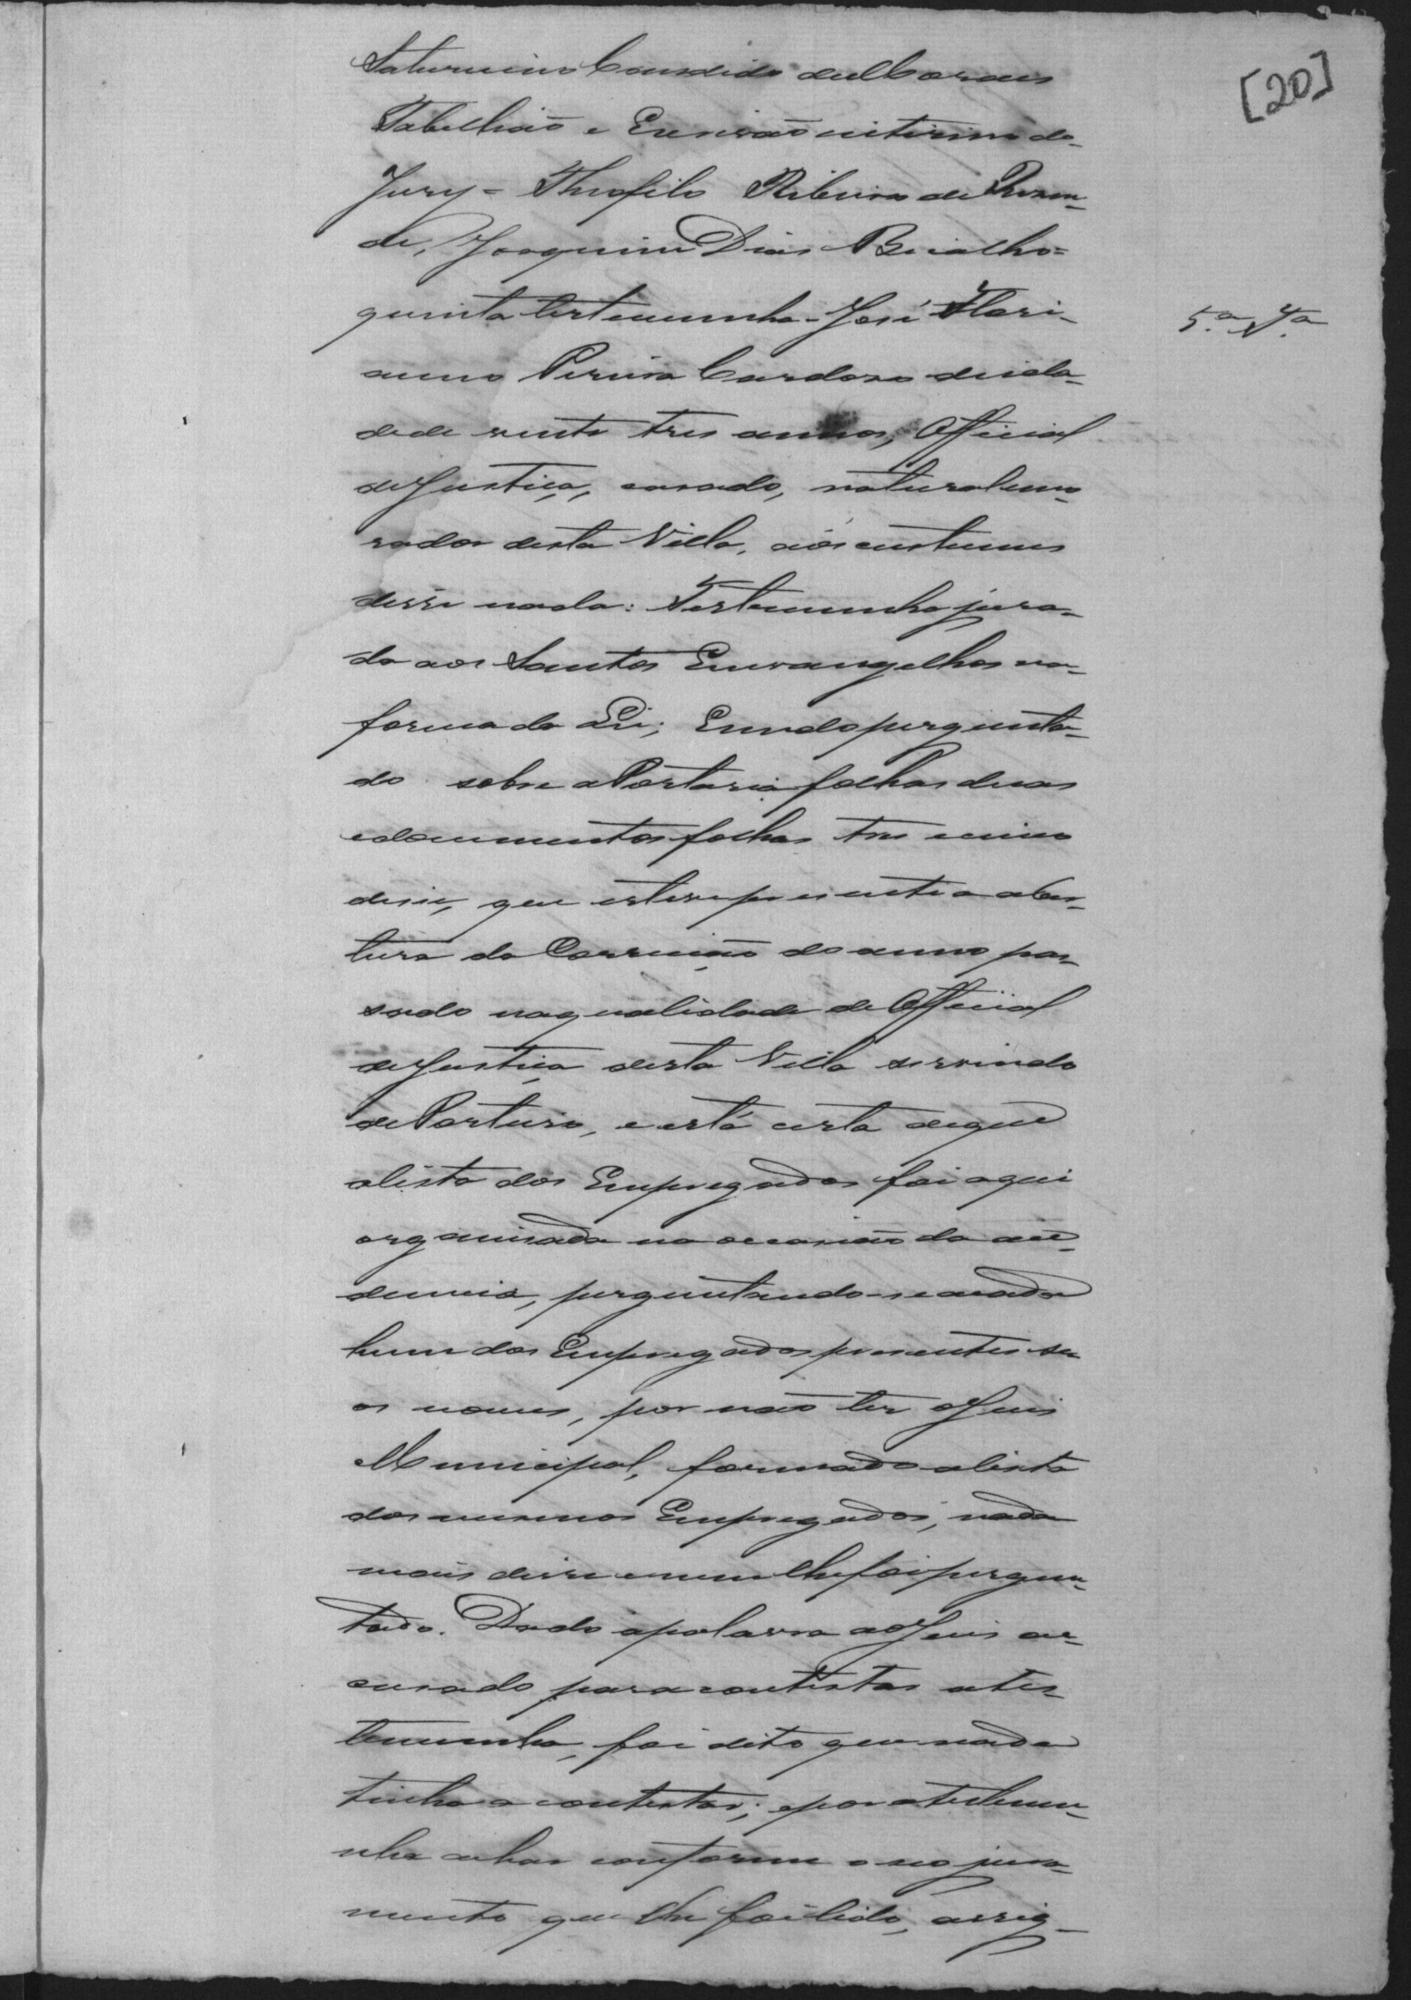 [20]
Saturnino Candido de Moraes
Tabellião e Escrivão interino do
Jury = Theofilo Ribeiro de Resen-
de, Joaquim Dias Bicalho =
quinta testemunha - José Flori-
5.ª T.ª
anno Pereira Cardoso de ida-
de de vinte tres annos, Official
de Justiça, casado, natural e mo-
rador desta Villa, aós custumes
disse nada: Testemunha jura-
da aos Santos Envangelhos na
forma da Lei; E sendo pergunta-
do sobre a Portaria folhas duas
e documentos folhas tres e cinco
disse, que esteve presente a aber-
tura da Correição do anno pas-
sado na qualidade de Official
de Justiça desta Villa servindo
de Porteiro, e está certa de que
a lista dos Empregados foi aqui
organisada na occasião da au-
diencia, perguntando-se a cada
hum dos Empregados presentes se-
os nomes, por não ter o Juis
Municipal, formado a lista
dos mesmos Empregados, nada
mais disse e nem lhe foi pergun-
tado. Dada a palavra ao Juis ac-
cusado para contestar a tes-
temunha, foi dito que nada
tinha a contestar; e por a testemu-
nha achar conforme o seo jura-
mento que lhe foi lido, assig-